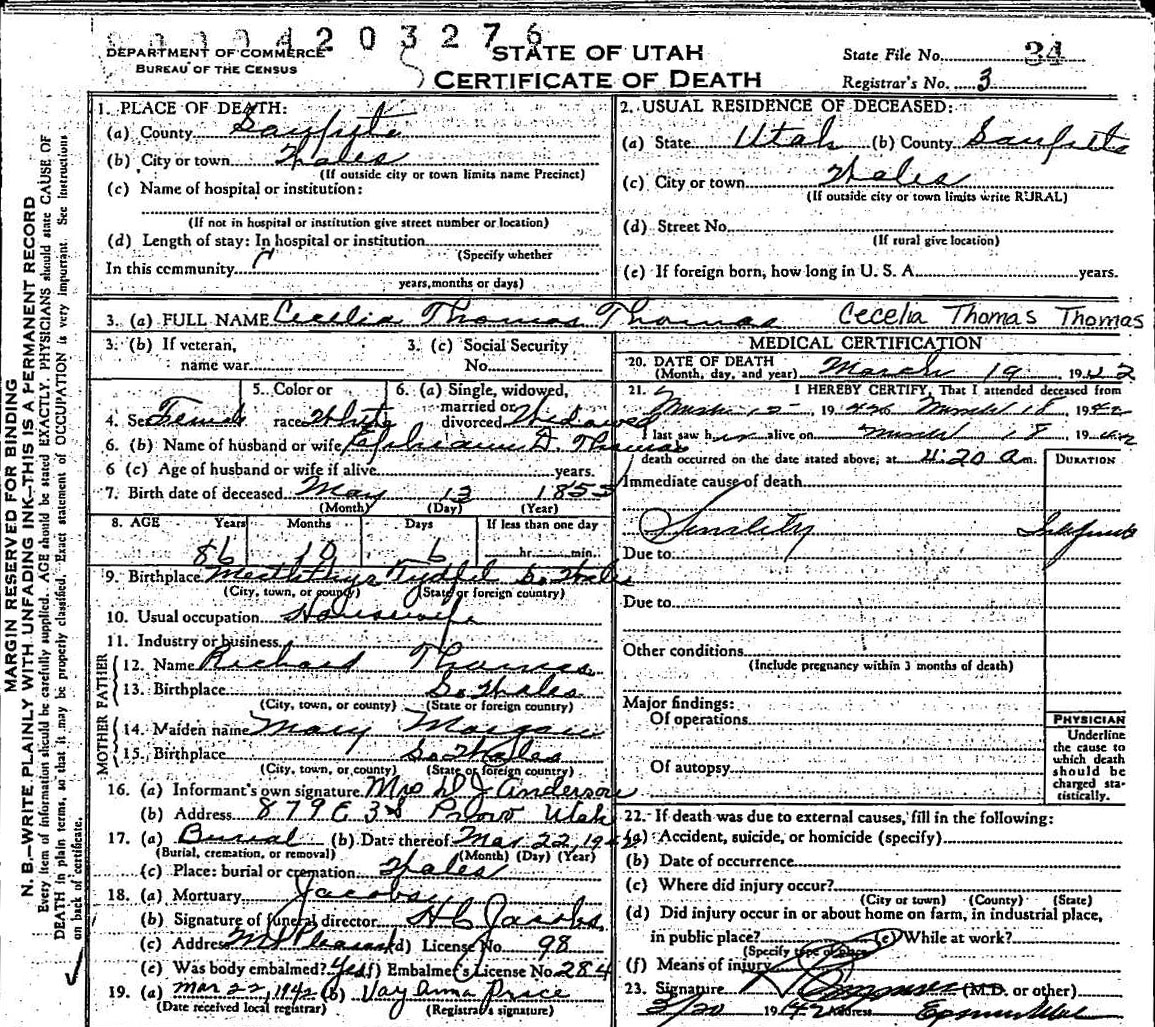 0000420 3276
DEPARTMENT OF COMMERCE
BUREAU OF THE CENSUS
STATE OF UTAH
CERTIFICATE OF DEATH
State File No. 34
Registrar's No. 3
MARGIN RESERVED FOR BINDING
N. B.—WRITE PLAINLY WITH UNFADING INK—THIS IS A PERMANENT RECORD
Every item of information should be carefully supplied. AGE should be stated EXACTLY. PHYSICIANS should state CAUSE OF
DEATH in plain terms, so that it may be properly classified. Exact statement of OCCUPATION is very important. See instructions
on back of certificate.
1. PLACE OF DEATH:
(a) County Sanpete
(b) City or town Wales
(If outside city or town limits name Precinct)
(c) Name of hospital or institution:
(If not in hospital or institution give street number or location)
(d) Length of stay: In hospital or institution
(Specify whether
In this community
years, months or days)
2. USUAL RESIDENCE OF DECEASED:
(a) State Utah (b) County Sanpete
(c) City or town Wales
(If outside city or town limits write RURAL)
(d) Street No.
(If rural give location)
(e) If foreign born, how long in U. S. A. years.
3. (a) FULL NAME Cecelia Thomas Thomas Cecelia Thomas Thomas
3. (b) If veteran,
name war
3. (c) Social Security
No.
4. Sex Female
5. Color or
race White
6. (a) Single, widowed,
married or
divorced Widowed
6. (b) Name of husband or wife Ephraim D. Thomas
6 (c) Age of husband or wife if alive years.
7. Birth date of deceased May 13 1855
(Month) (Day) (Year)
8. AGE Years Months Days If less than one day
86 10 6 hr. min.
9. Birthplace Merthyr Tydfil So. Wales
(City, town, or county) (State or foreign country)
10. Usual occupation Housewife
11. Industry or business
FATHER
12. Name Richard Thomas
13. Birthplace So. Wales
(City, town, or county) (State or foreign country)
MOTHER
14. Maiden name Mary Morgan
15. Birthplace So. Wales
(City, town, or county) (State or foreign country)
16. (a) Informant's own signature Mrs D J Anderson
(b) Address 879 E 3 S Provo Utah
17. (a) Burial (b) Date thereof Mar 22, 1942
(Burial, cremation, or removal) (Month) (Day) (Year)
(c) Place: burial or cremation Wales
18. (a) Mortuary Jacobs
(b) Signature of funeral director H C Jacobs
(c) Address Mt Pleasant (d) License No. 98
(e) Was body embalmed? Yes (f) Embalmer's License No. 284
19. (a) Mar 22, 1942 (b) Vay Anna Price
(Date received local registrar) (Registrar's signature)
MEDICAL CERTIFICATION
20. DATE OF DEATH
(Month, day, and year) March 19, 1942
21. I HEREBY CERTIFY, That I attended deceased from
March 19 March 18 1942
I last saw her alive on March 18 1942
death occurred on the date stated above, at 4:20 a m.
DURATION
Immediate cause of death
Senility
Due to
Due to
Other conditions
(Include pregnancy within 3 months of death)
Major findings:
Of operations
Of autopsy
PHYSICIAN
Underline
the cause to
which death
should be
charged sta-
tistically.
22. If death was due to external causes, fill in the following:
(a) Accident, suicide, or homicide (specify)
(b) Date of occurrence
(c) Where did injury occur?
(City or town) (County) (State)
(d) Did injury occur in or about home on farm, in industrial place,
in public place? (e) While at work?
(Specify type of place)
(f) Means of injury
23. Signature (M.D. or other)
3/20 1942 Address